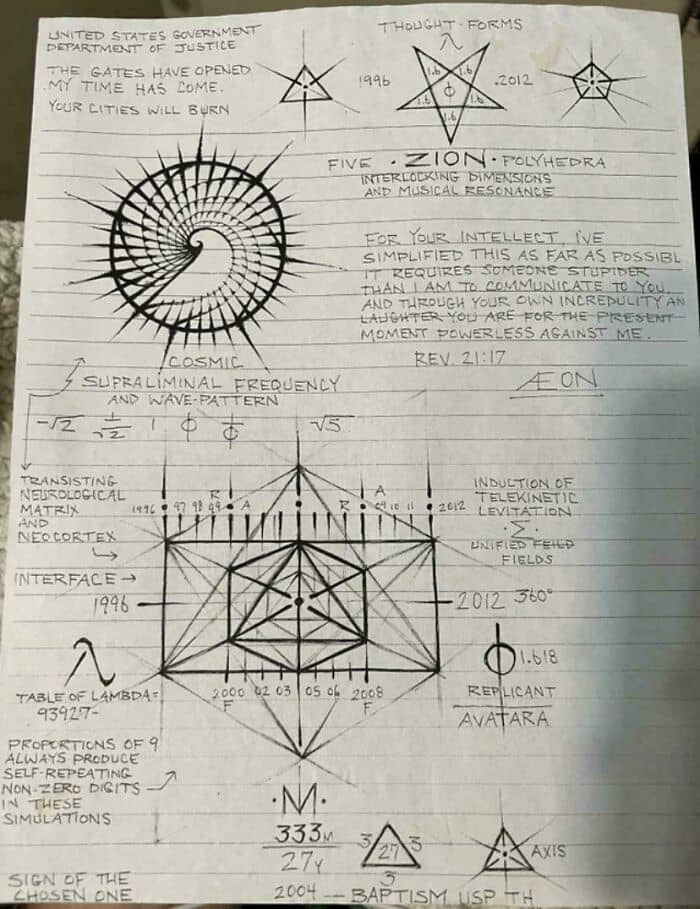 UNITED STATES GOVERNMENT
DEPARTMENT OF JUSTICE
THE GATES HAVE OPENED
MY TIME HAS COME.
YOUR CITIES WILL BURN
THOUGHT-FORMS
λ
1996
1.6 1.6
1.6 φ 1.6
1.6
.2012
FIVE · ZION · POLYHEDRA
INTERLOCKING DIMENSIONS
AND MUSICAL RESONANCE
FOR YOUR INTELLECT, I'VE
SIMPLIFIED THIS AS FAR AS POSSIBL
IT REQUIRES SOMEONE STUPIDER
THAN I AM TO COMMUNICATE TO YOU
AND THROUGH YOUR OWN INCREDULITY AN
LAUGHTER YOU ARE FOR THE PRESENT
MOMENT POWERLESS AGAINST ME.
REV. 21:17
ÆON
COSMIC
SUPRALIMINAL FREQUENCY
AND WAVE-PATTERN
-√2 1/√2 1 φ 1/φ √5
TRANSISTING
NEUROLOGICAL
MATRIX
AND
NEOCORTEX
INTERFACE →
R A
R A
1996 97 98 99 09 10 11 2012
INDUCTION OF
TELEKINETIC
LEVITATION
·Σ·
UNIFIED FEILD
FIELDS
1996
2012 360°
λ
TABLE OF LAMBDA=
93927-
2000 02 03 05 06 2008
F F
φ 1.618
REPLICANT
AVATARA
PROPORTIONS OF 9
ALWAYS PRODUCE
SELF-REPEATING
NON-ZERO DIGITS
IN THESE
SIMULATIONS
·M·
333M
27Y
3 27 3
3
AXIS
SIGN OF THE
CHOSEN ONE
2004 -- BAPTISM USP TH